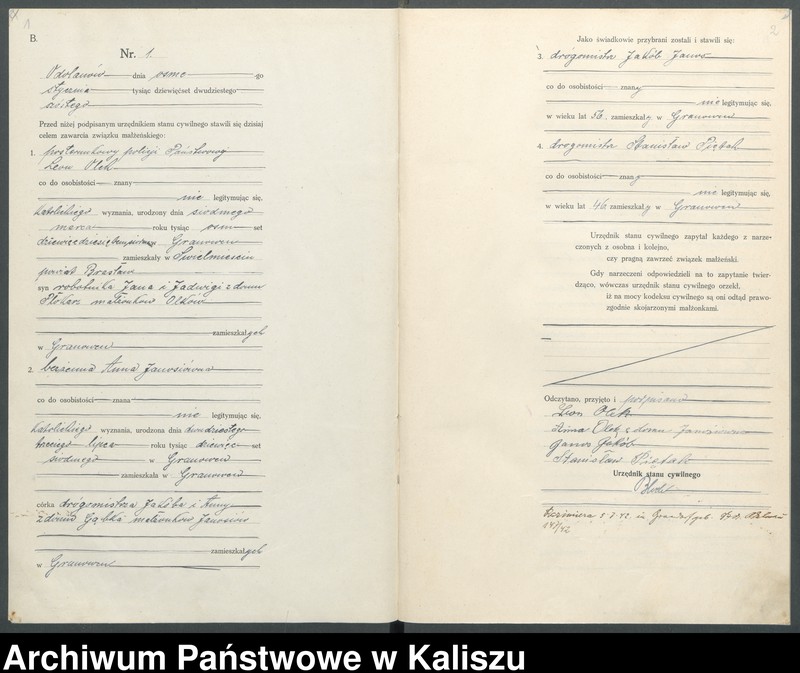 1
B.
Nr. 1.
Odolanów dnia osme go
stycznia tysiąc dziewięćset dwudziestego
szóstego
Przed niżej podpisanym urzędnikiem stanu cywilnego stawili się dzisiaj
celem zawarcia związku małżeńskiego:
1. posterunkowy policji Państwowej
Leon Olek
co do osobistości znany
nie legitymując się,
katolickiego wyznania, urodzony dnia siódmego
marca roku tysiąc osm set
w Granowcu
zamieszkały w
powiat
syn robotnika Jana i Jadwigi z domu
małżonków Olków
zamieszkałych
w Granowcu
2. Anna Janosiówna
co do osobistości znana
nie legitymując się,
katolickiego wyznania, urodzona dnia dwudziestego
trzeciego lipca roku tysiąc dziewięć set
siódmego w Granowcu
zamieszkała w Granowcu
córka drógomistrza Jakóba i Anny
z domu Gąbka małżonków Janosiów
zamieszkałych
w Granowcu
2
Jako świadkowie przybrani zostali i stawili się:
3. drógomistrz Jakób Janos
co do osobistości znany
nie legitymując się,
w wieku lat 56, zamieszkały w Granowcu
4. drogomistrz Stanisław Piętak
co do osobistości znany
nie legitymując się,
w wieku lat 46 zamieszkały w Granowcu
Urzędnik stanu cywilnego zapytał każdego z narze-
czonych z osobna i kolejno,
czy pragną zawrzeć związek małżeński.
Gdy narzeczeni odpowiedzieli na to zapytanie twier-
dząco, wówczas urzędnik stanu cywilnego orzekł,
iż na mocy kodeksu cywilnego są oni odtąd prawo-
zgodnie skojarzonymi małżonkami.
Odczytano, przyjęto i podpisano
Leon Olek
Anna Olek z domu
Janos Jakób
Stanisław Piętak
Urzędnik stanu cywilnego
147/42
Archiwum Państwowe w Kaliszu